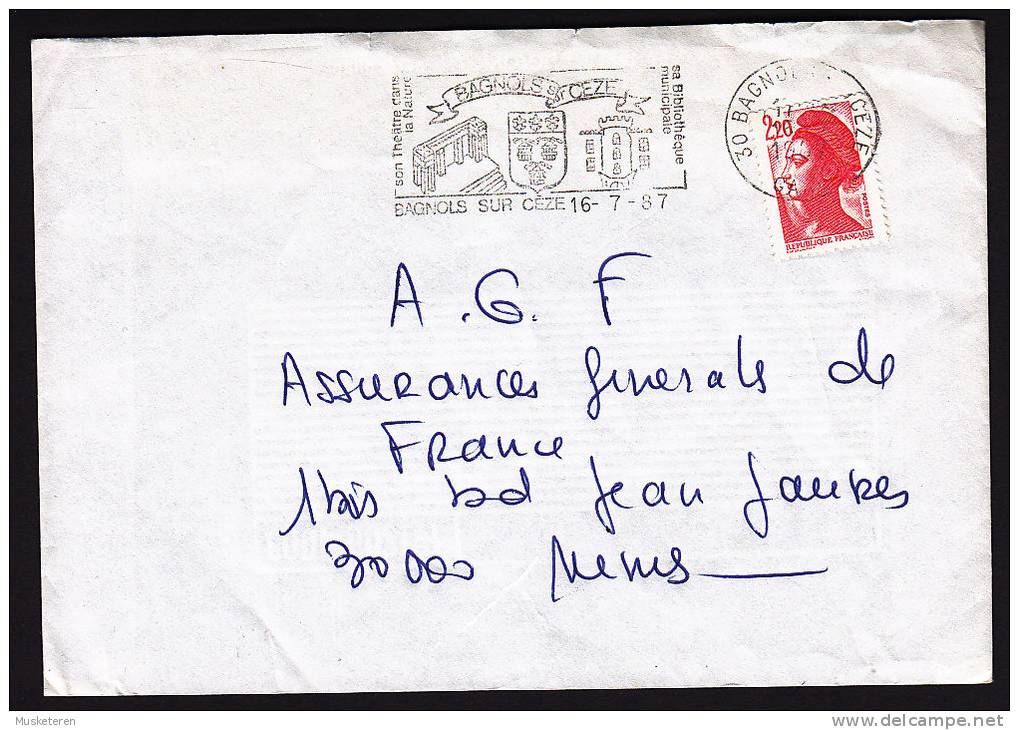 son Théâtre dans
la Nature
BAGNOLS Sr CEZE
sa Bibliothèque
municipale
BAGNOLS SUR CEZE 16- 7 - 87
30 BAGNOLS CEZE
2,20
POSTES
REPUBLIQUE FRANÇAISE
A . G. F
Assurances Generals de
France
1bis bd Jean Jaures
30000 Nimes
Musketeren
www.delcampe.net